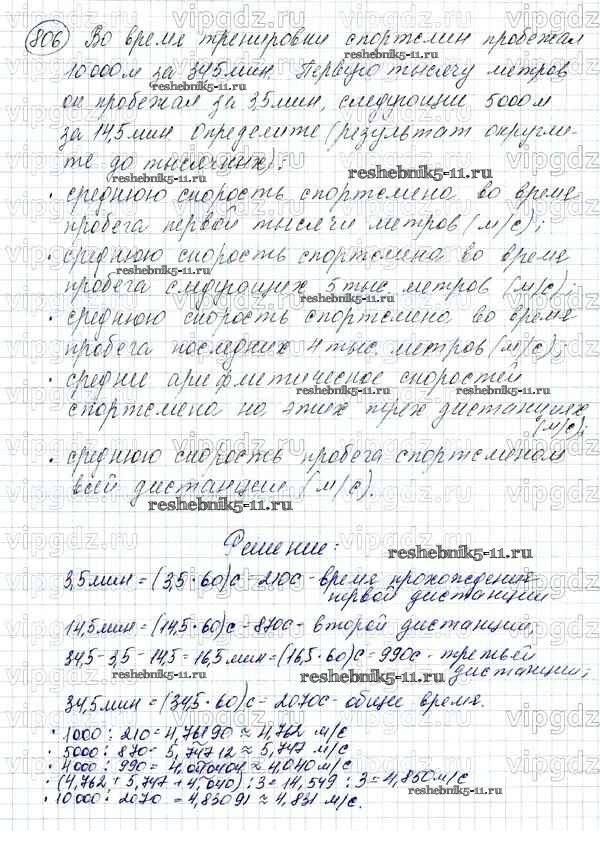 806 Во время тренировки спортсмен пробежал
10000м за 34,5мин. Первую тысячу метров
он пробежал за 3,5мин, следующие 5000м
за 14,5мин Определите (результат округли-
те до тысячных):
· среднюю скорость спортсмена во время
пробега первой тысячи метров (м/с);
· среднюю скорость спортсмена во время
пробега следующих 5 тыс. метров (м/с);
· среднюю скорость спортсмена во время
пробега последних 4 тыс. метров (м/с);
· среднее арифметическое скоростей
спортсмена на этих трех дистанциях
(м/с);
· среднюю скорость пробега спортсменом
всей дистанции (м/с).
Решение:
3,5мин = (3,5·60)с = 210с - время прохождения
первой дистанции
14,5мин = (14,5·60)с = 870с - второй дистанции;
34,5-3,5-14,5 = 16,5мин = (16,5·60)с = 990с - третьей
дистанции;
34,5мин = (34,5·60)с = 2070с - общее время.
· 1000 : 210 = 4,76190 ≈ 4,762 м/с
· 5000 : 870 = 5,74712 ≈ 5,747 м/с
· 4000 : 990 = 4,040404 ≈ 4,040м/с
· (4,762 + 5,747 + 4,040) : 3 = 14,549 : 3 = 4,850м/с
· 10000 : 2070 = 4,83091 ≈ 4,831 м/с.
vipgdz.ru
reshebnik5-11.ru